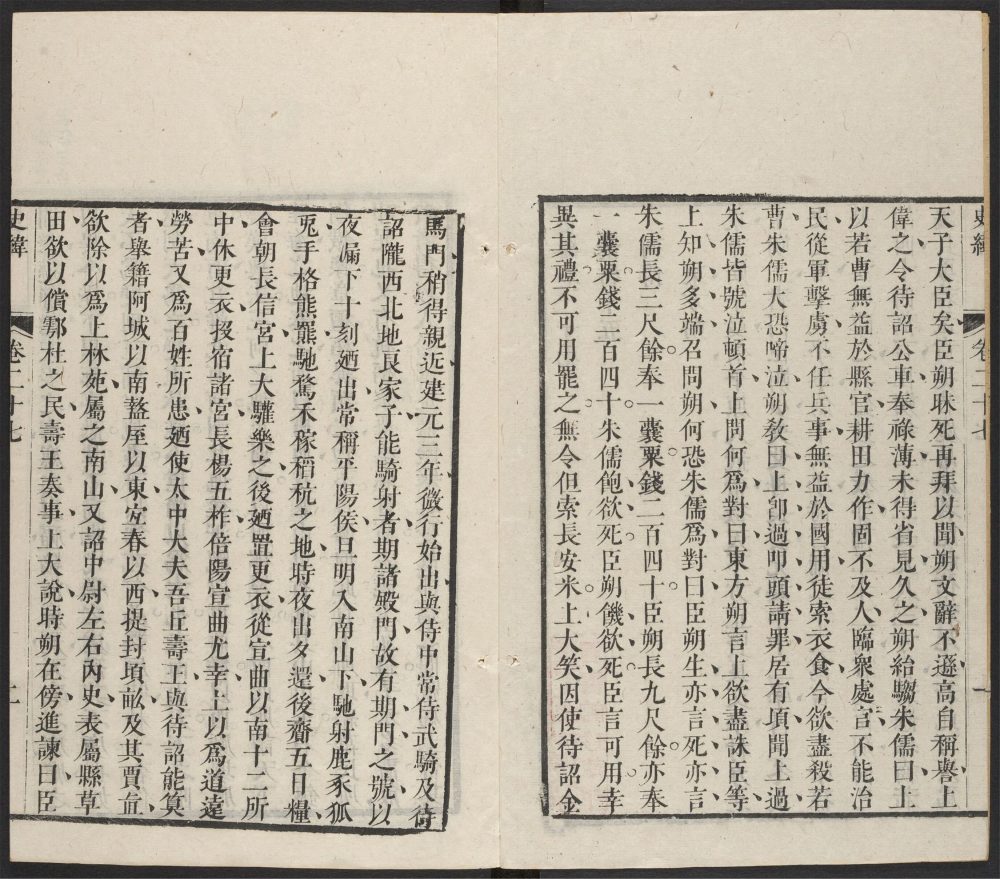 史緯
卷二十七
一
天子大臣矣臣朔昧死再拜以聞朔文辭不遜高自稱譽上
偉之令待詔公車奉祿薄未得省見久之朔紿騶朱儒曰上
以若曹無益於縣官耕田力作固不及人臨衆處官不能治
民從軍擊虜不任兵事無益於國用徒索衣食今欲盡殺若
曹朱儒大恐啼泣朔敎曰上卽過叩頭請罪居有項聞上過
朱儒皆號泣頓首上問何爲對曰東方朔言上欲盡誅臣等
上知朔多端召問朔何恐朱儒爲對曰臣朔生亦言死亦言
朱儒長三尺餘奉一囊粟錢二百四十臣朔長九尺餘亦奉
一囊粟錢二百四十朱儒飽欲死臣朔饑欲死臣言可用幸
異其禮不可用罷之無令但索長安米上大笑因使待詔金
馬門稍得親近建元三年微行始出與侍中常侍武騎及待
詔隴西北地良家子能騎射者期諸殿門故有期門之號以
夜漏下十刻廼出常稱平陽侯旦明入南山下馳射鹿豕狐
兎手格熊羆馳騖禾稼稻秔之地時夜出夕還後齋五日糧
會朝長信宮上大驩樂之後廼置更衣從宣曲以南十二所
中休更衣投宿諸宮長楊五柞倍陽宣曲尤幸上以爲道遠
勞苦又爲百姓所患廼使太中大夫吾丘壽王與待詔能筭
者舉籍阿城以南盩厔以東宜春以西提封頃畝及其賈直
欲除以爲上林苑屬之南山又詔中尉左右內史表屬縣草
田欲以償鄠杜之民壽王奏事上大說時朔在傍進諫曰臣
史緯
卷二十七
二